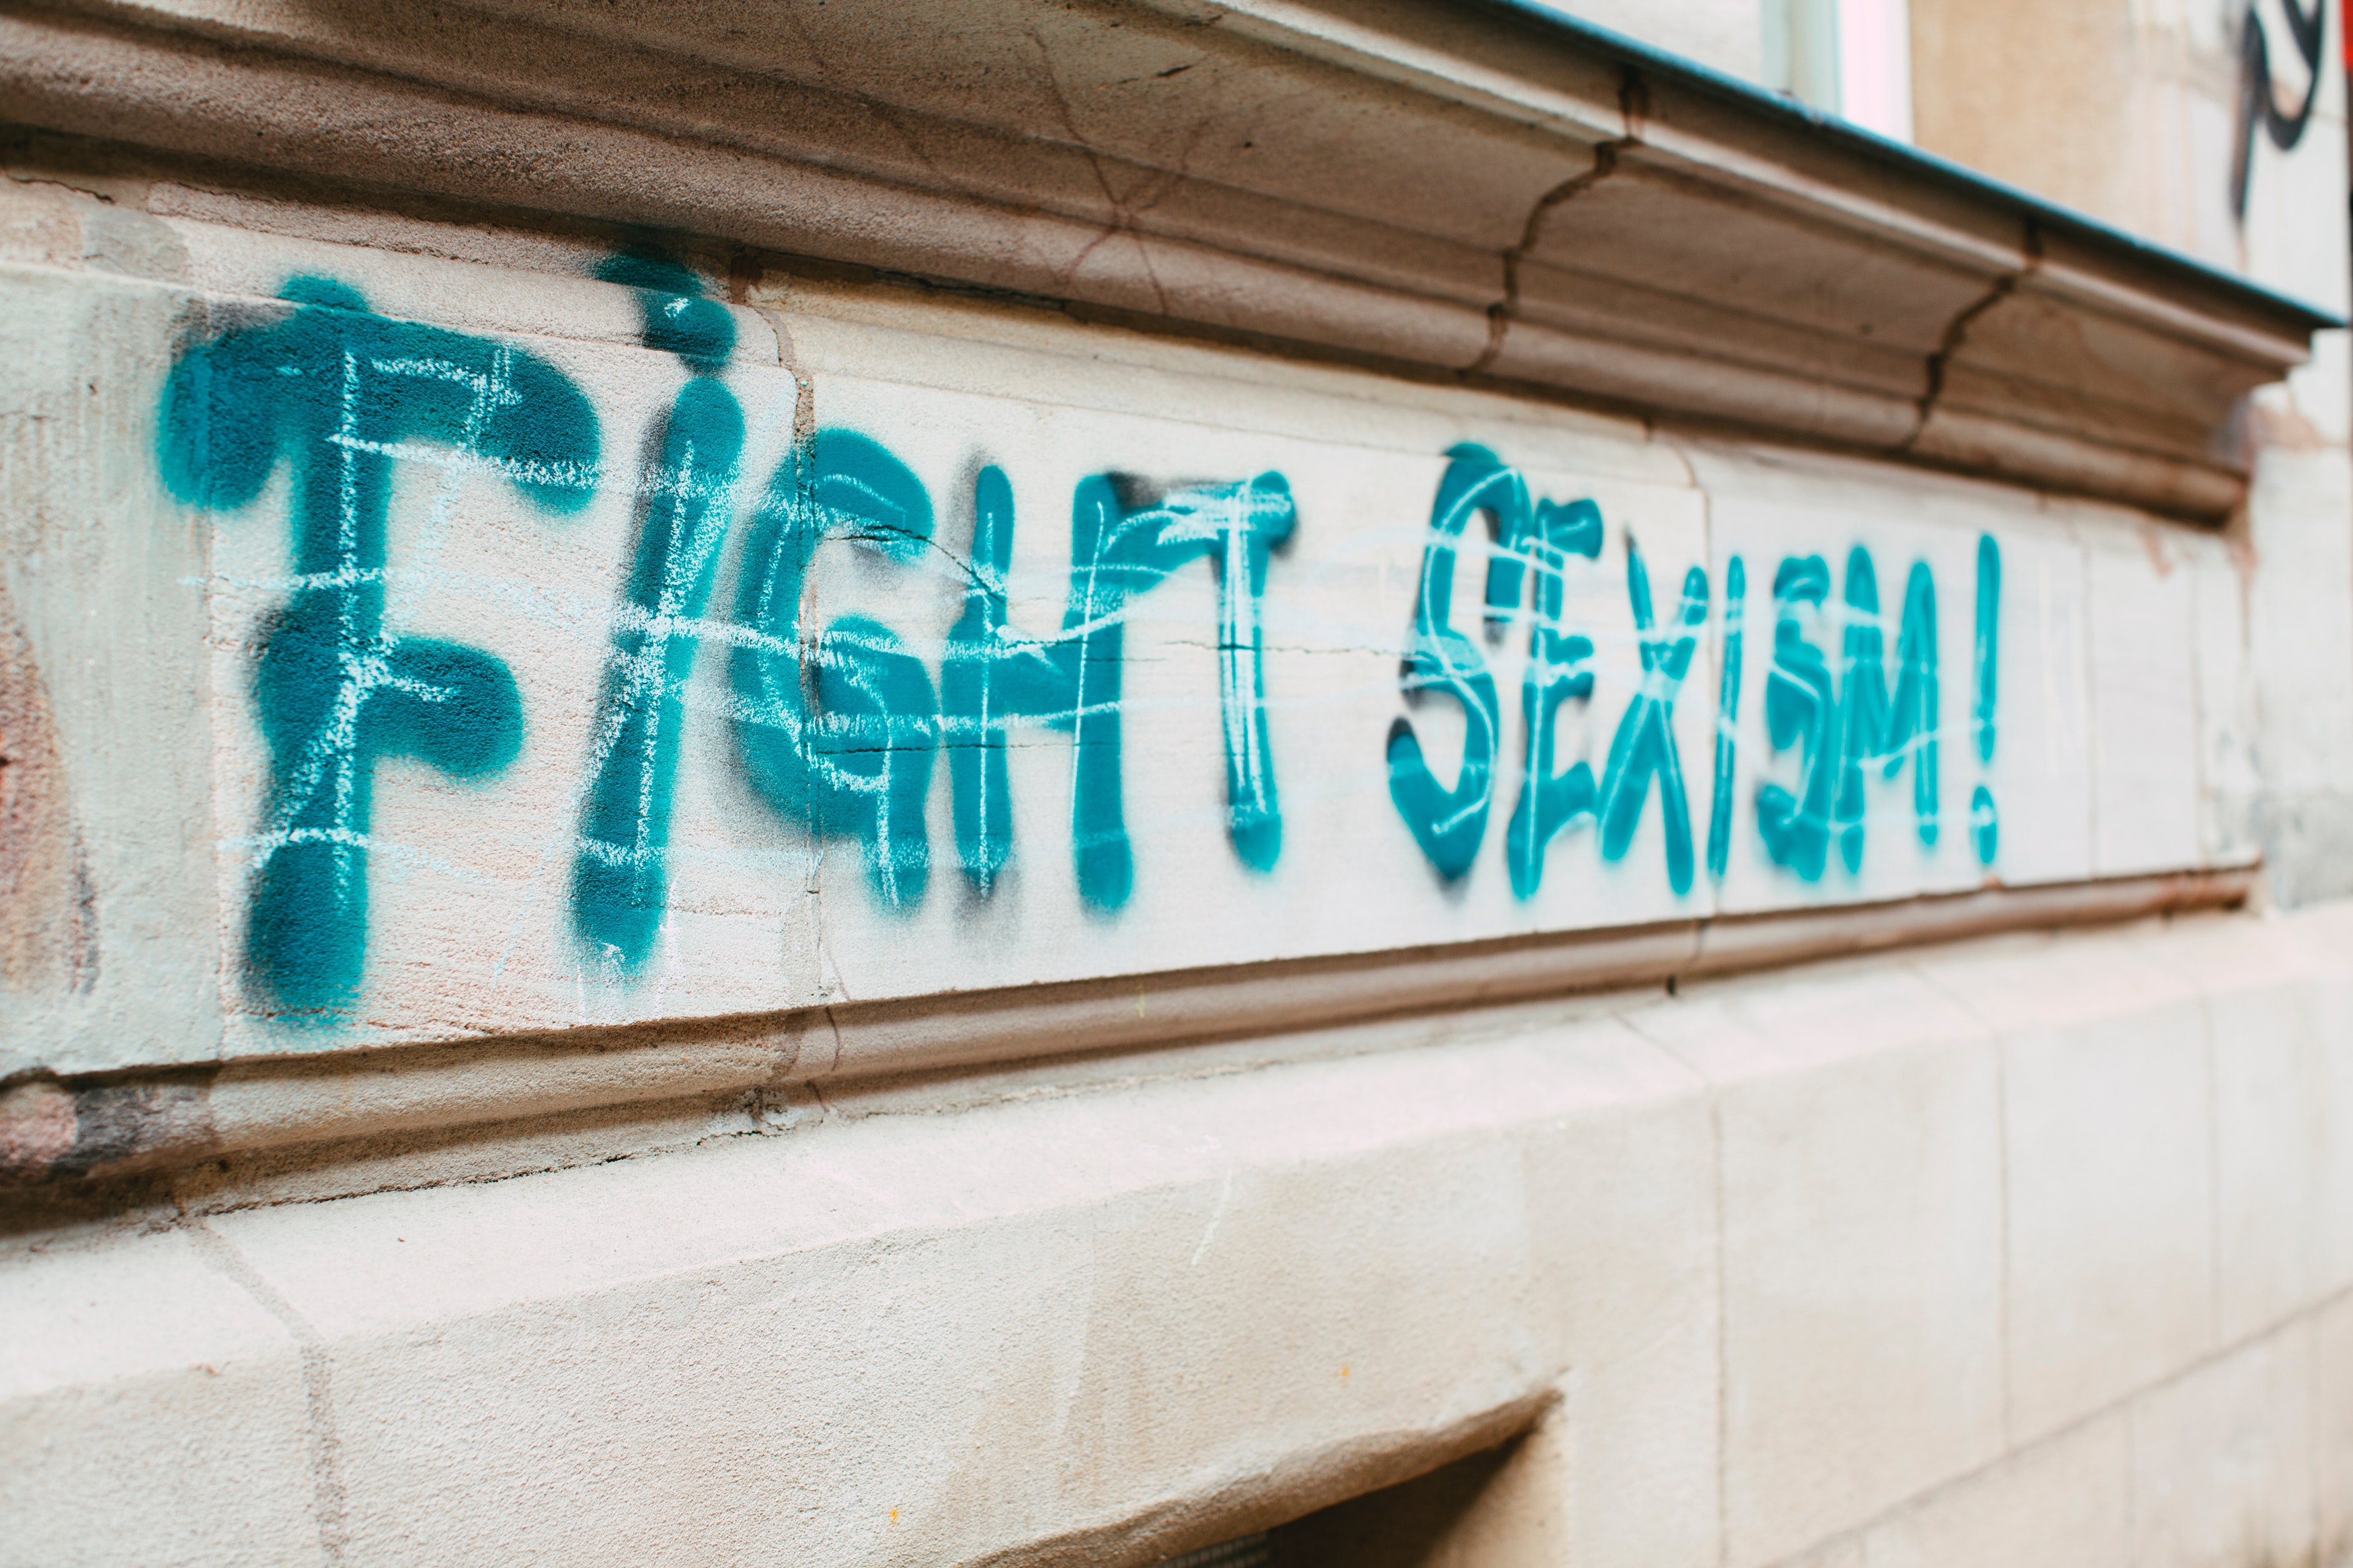 FiGHT SEXISM!